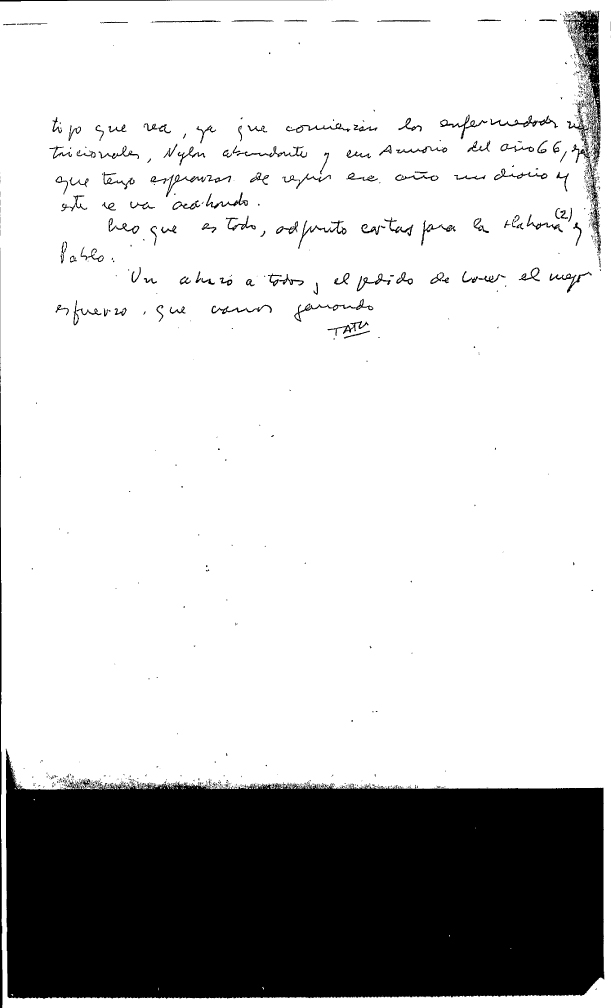 tipo que sea, ya que comienzan las enfermedades nu
tricionales, Nylon abundante y un Anuario del año 66, ya
que tengo esperanzas de seguir ese año mi diario y
este se va acabando.
Creo que es todo, adjunto cartas para la Habana (2) y
Pablo.
Un abrazo a todos y el pedido de hacer el mejor
esfuerzo, que vamos ganando
TATU